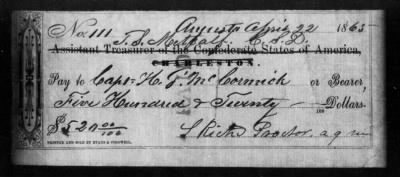 No. 111 Augusta April 22 1865
T. S. Metcalf
Assistant Treasurer of the Confederate States of America,
CHARLESTON.
Pay to Capt. H. F. McCormick or Bearer,
Five Hundred & Twenty Dollars.
$520 00/100 Proctor, a q m
PRINTED AND SOLD BY EVANS & COGSWELL.